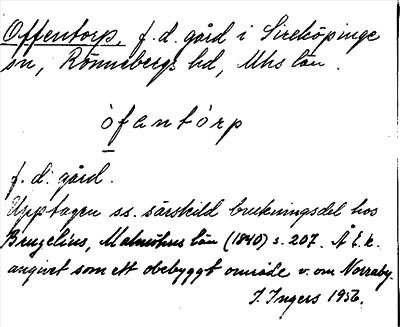 Offentorp, f.d. gård i Sireköpinge
sn, Rönnebergs hd, Mhs län.
òfantórp
f.d. gård.
Upptagen ss. särskild brukningsdel hos
Bruzelius, Malmöhus län (1840) s. 207. Å t.k.
angivet som ett obebyggt område v. om Norraby.
I. Ingers 1956.